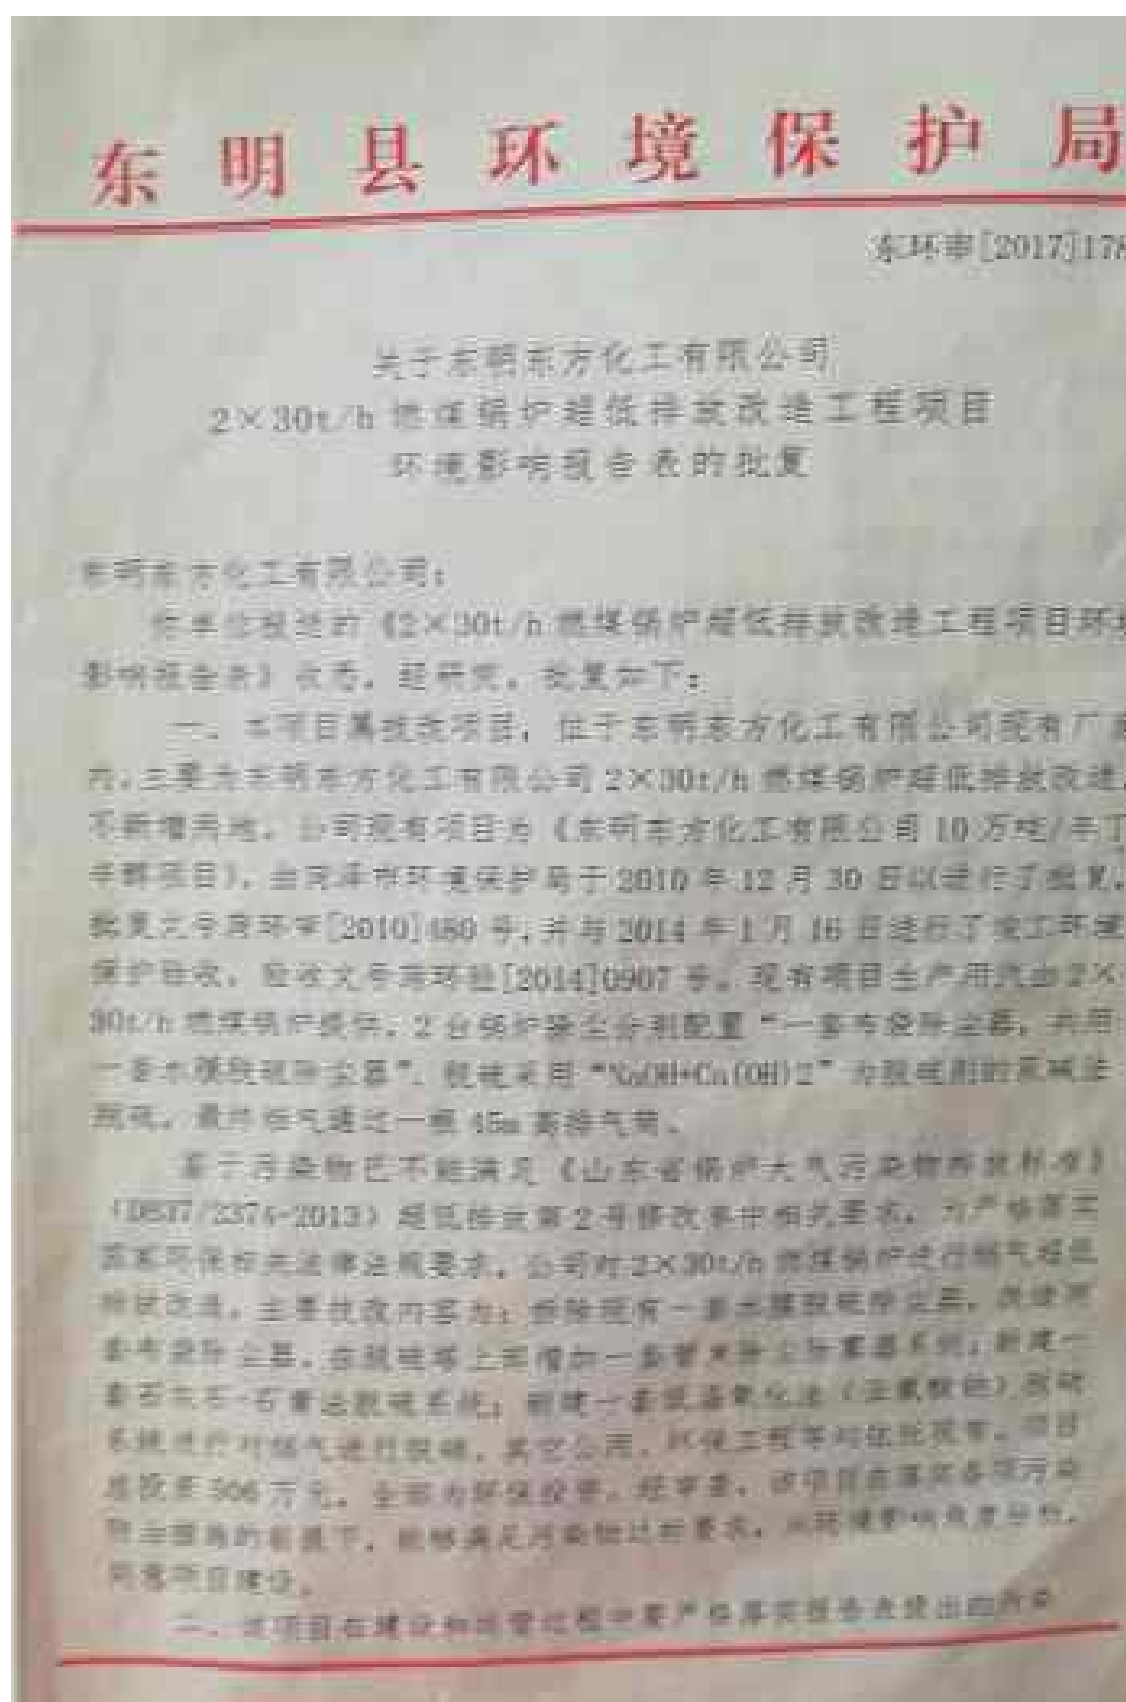 东明县环境保护局
东环审[2017]178
关于东明东方化工有限公司
2×30t/h 燃煤锅炉超低排放改造工程项目
环境影响报告表的批复
东明东方化工有限公司:
你单位报送的《2×30t/h 燃煤锅炉超低排放改造工程项目环境
影响报告表》收悉。经研究,批复如下:
一、本项目属技改项目,位于东明东方化工有限公司现有厂区
内,主要为东明东方化工有限公司 2×30t/h 燃煤锅炉超低排放改造,
不新增用地。公司现有项目为《东明东方化工有限公司 10 万吨/年丁
辛醇项目》,由菏泽市环境保护局于 2010 年 12 月 30 日以进行了批复,
批复文号菏环审[2010]480 号,并与 2014 年 1 月 16 日进行了竣工环境
保护验收,验收文号菏环验[2014]0907 号。现有项目生产用汽由 2×
30t/h 燃煤锅炉提供,2 台锅炉除尘分别配置“一套布袋除尘器,共用
一套水膜脱硫除尘器”,脱硫采用“NaOH+Ca(OH)2”为脱硫剂的双碱法
脱硫,最终烟气通过一根 45m 高排气筒。
鉴于污染物已不能满足《山东省锅炉大气污染物排放标准》
(DB37/2374-2013)超低排放第 2 号修改单中相关要求,为严格落实
国家环保相关法律法规要求,公司对 2×30t/h 燃煤锅炉进行烟气超低
排放改造,主要技改内容为:拆除现有一套水膜脱硫除尘器,改建两
套布袋除尘器,在脱硫塔上部增加一套管束除尘除雾器系统;新建一
套石灰石-石膏法脱硫系统;新建一套低温氧化法(亚氯酸钠)脱硝
系统进行对烟气进行脱硝,其它公用、环保工程等均依托现有。项目
总投资 506 万元,全部为环保投资。经审查,该项目在落实各项污染
防治措施的前提下,能够满足污染物达标要求,从环境影响角度分析,
同意项目建设。
二、该项目在建设和运营过程中要严格落实报告表提出的污染